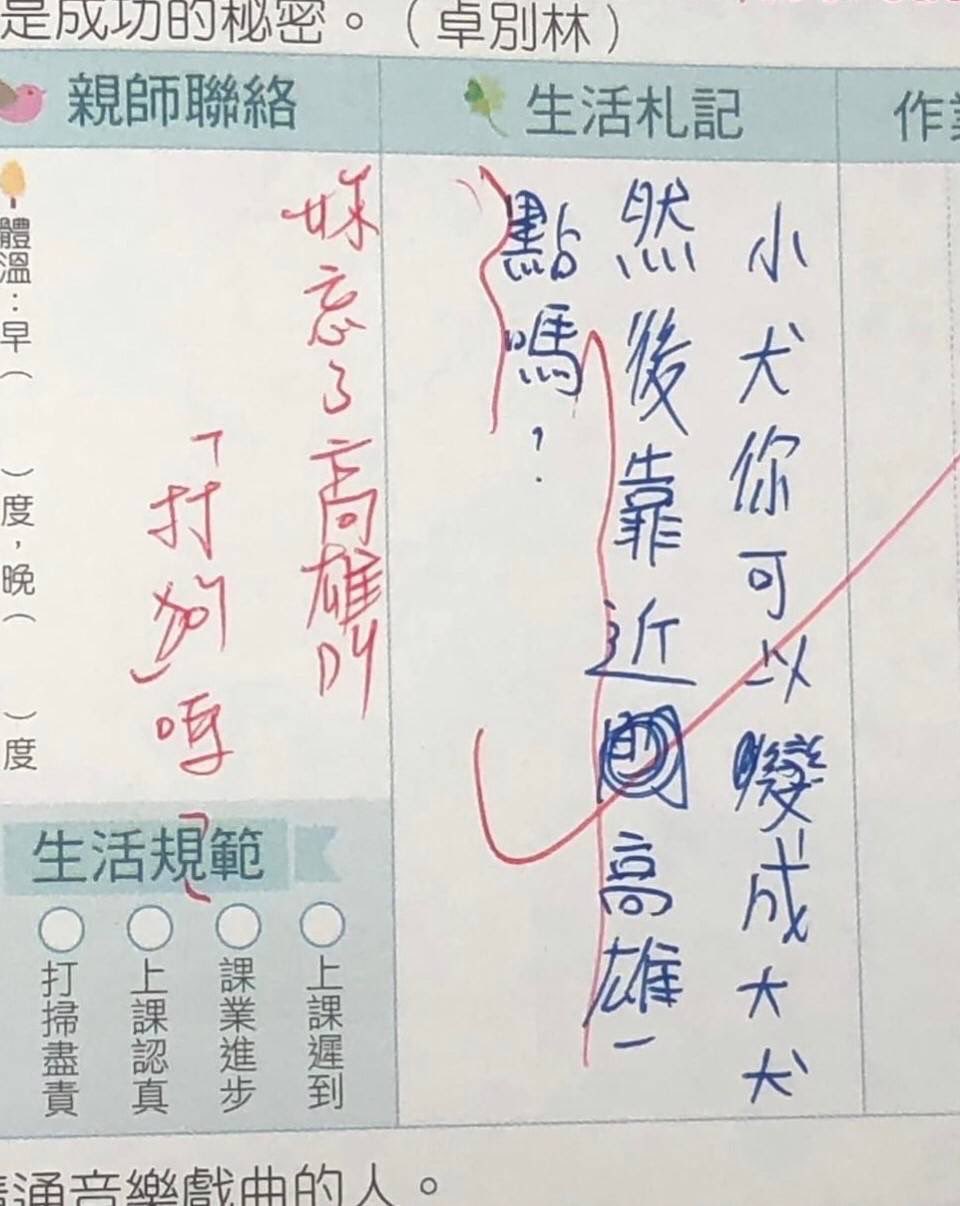 是成功的秘密。（卓別林）
親師聯絡
生活札記
作業
小犬你可以變成大犬
然後靠近高雄一
點嗎？
妳忘了高雄叫
「打狗」嗎
體溫：早（　）度，晚（　）度
生活規範
上課遲到
課業進步
上課認真
打掃盡責
通音樂戲曲的人。